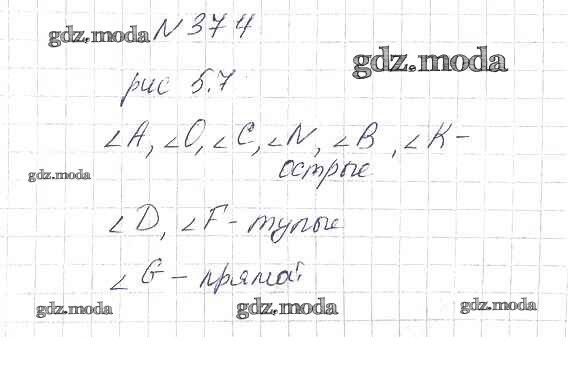 gdz.moda N 374
gdz.moda
рис 5.7
∠A, ∠O, ∠C, ∠N, ∠B, ∠K -
острые
gdz.moda
∠D, ∠F - тупые
∠G - прямой
gdz.moda gdz.moda gdz.moda